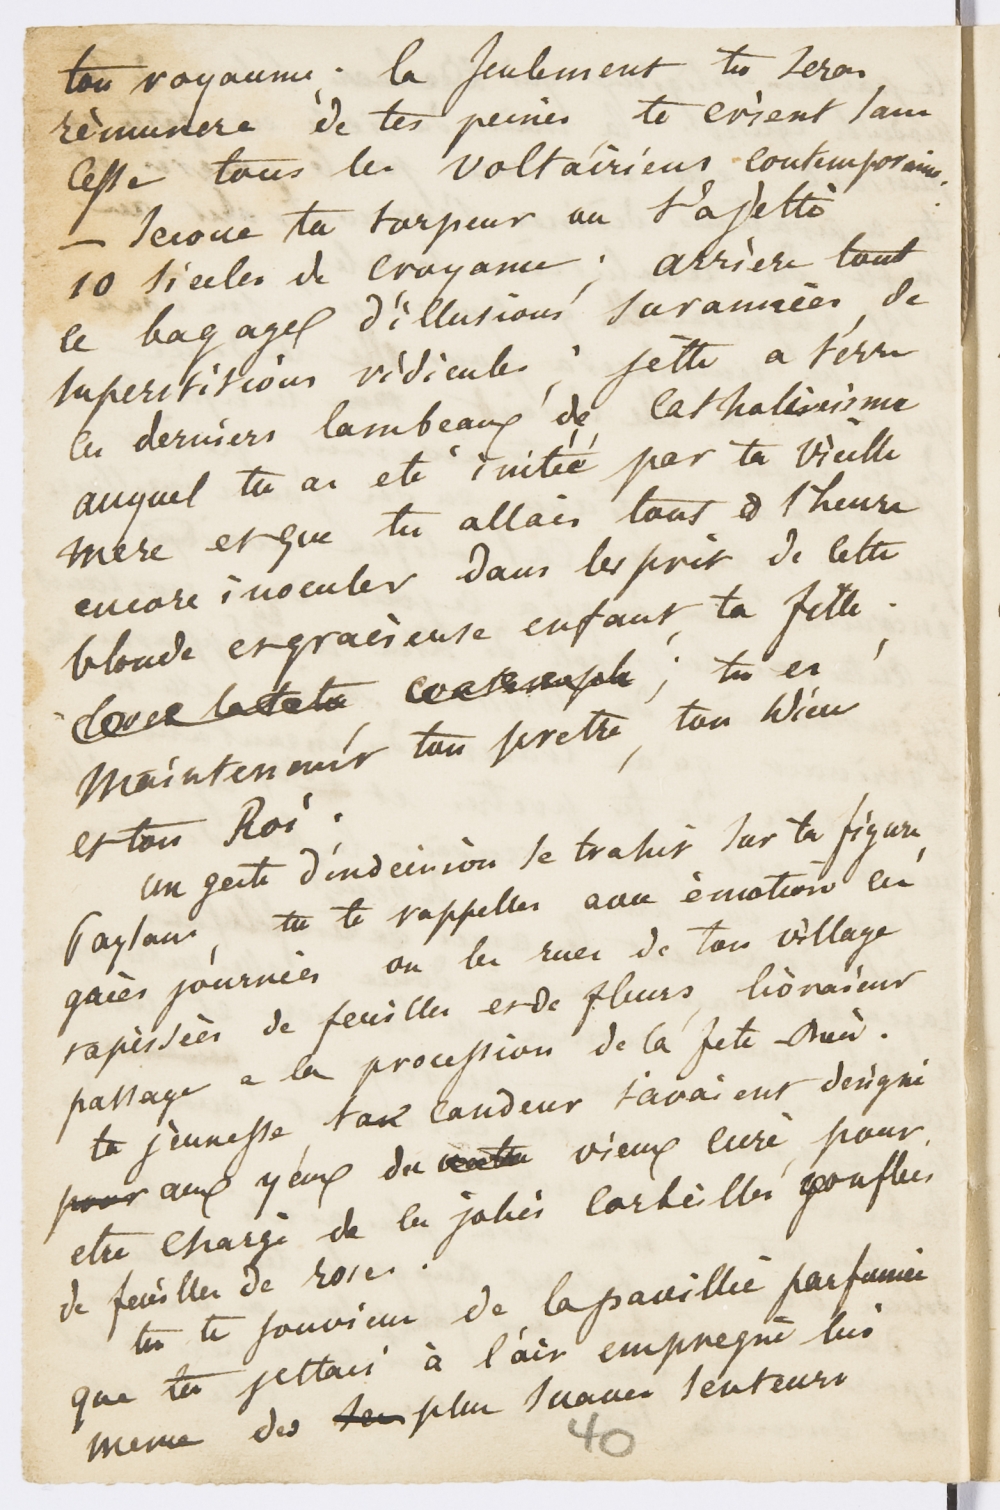 ton royaume ; la seulement tu seras
rèmunere de tes peines te crient sans
cesse tous les voltairiens contemporains.
— Secoue ta torpeur ou t'a jetté
10 siecles de croyance ; arriere tout
ce bagage d'illusions surannées, de
superstitions ridicules ; jette a terre
les derniers lambeaux de catholicisme
auquel tu as eté initié par ta vieille
mere et que tu allais tout à l'heure
encore inoculer dans lesprit de cette
blonde et gracieuse enfant, ta fille.
leve la tete ; tu es
maintenant ton pretre, ton Dieu
et ton Roi.
un geste d'indecision se trahit sur ta figure,
Paysan, tu te rappelles avec émotion ces
gaies journées ou les rues de ton village
tapissées de feuilles et de fleurs, livraient
passage a la procession de la fete Dieu.
ta jeunesse, ta candeur t'avaient designé
pour aux yeux du vieux curé, pour
etre chargé de ces jolies corbeilles gonflees
de feuilles de roses.
tu te souviens de la pavillée parfumée
que tu jettais à l'air empregné lui
meme des ses plus suaves senteurs
40